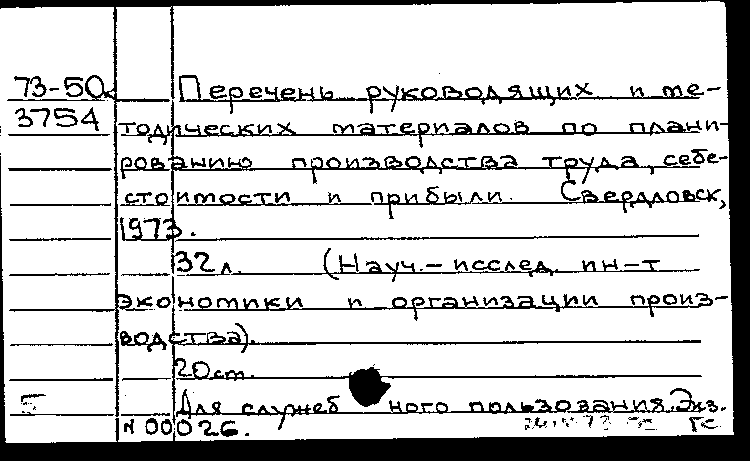 73-50 Перечень руководящих и ме-
3754 тодических материалов по плани-
рованию производства труда, себе-
стоимости и прибыли. Свердловск,
1973.
32л. (Науч.-исслед. ин-т
экономики и организации произ-
водства).
20см.
5 Для служебного пользования. Экз.
N 00026. ГС